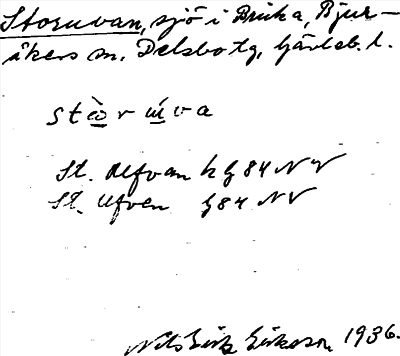 Storuvan, sjö i Bruka, Bjur-
åkers sn, Delsbo tg, Gävleb. l.
stὼrúva
St. Ufvan k G84 NV
St. Ufven G84 NV
Nils Erik Eriksson 1936.